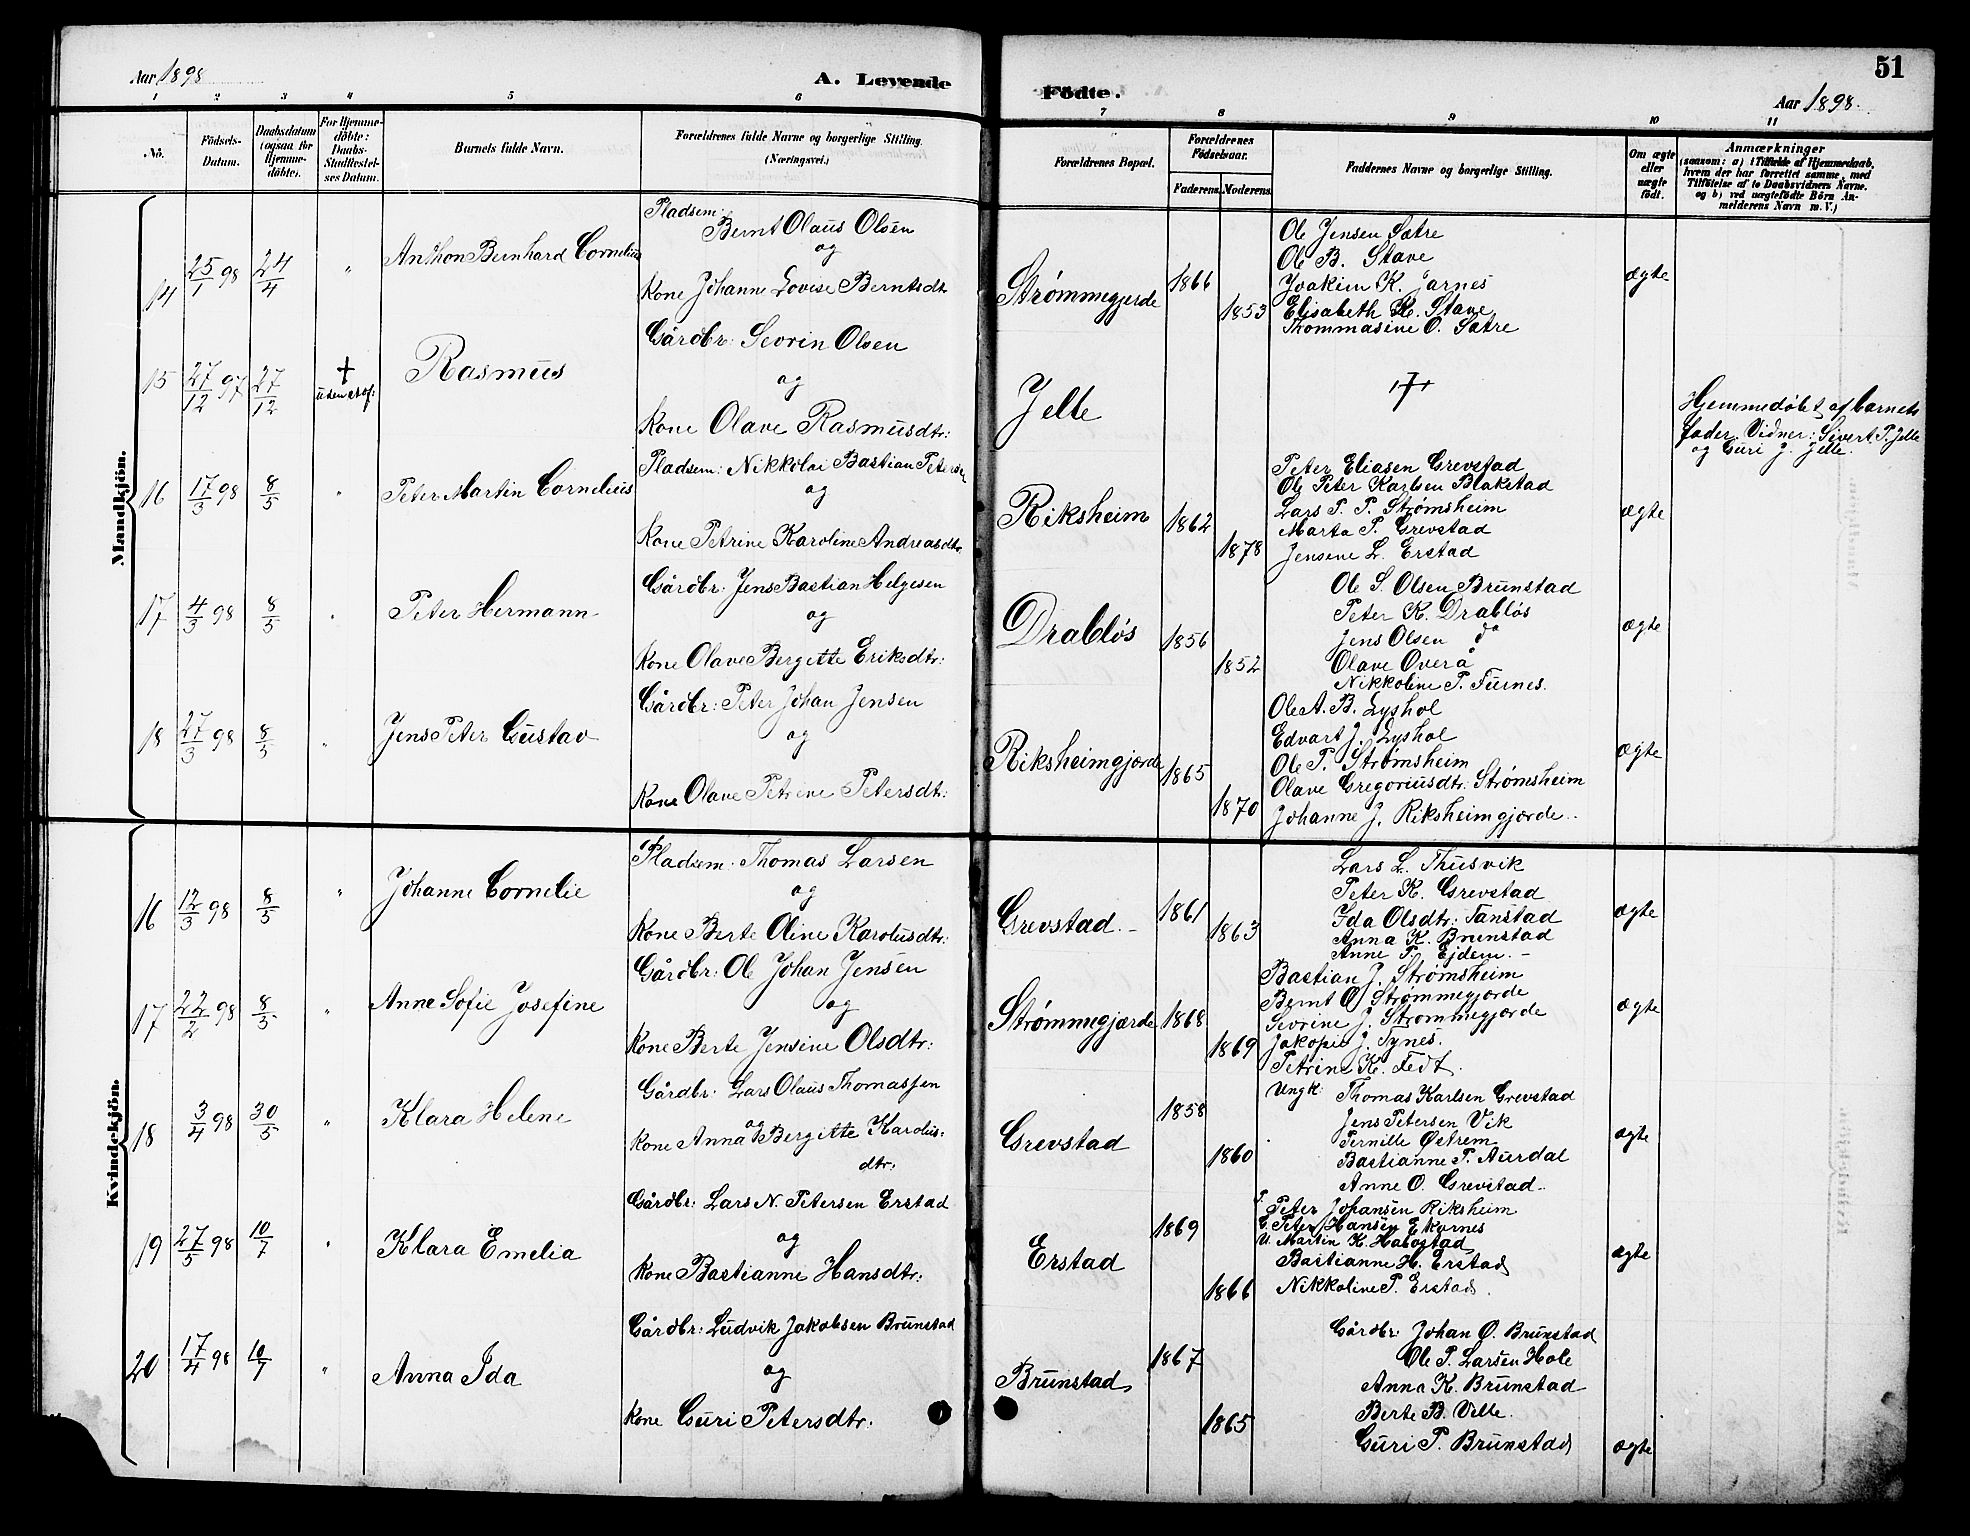 51
Aar 1898
A. Levende
Födte.
Aar 1898.
1 2 3 4 5 6 7 8 9 10 11
No.
Födsels-
Datum.
Daabsdatum
(ogsaa for
Hjemme-
döbte).
For Hjemme-
döbte:
Daabs-
Stadfæstel-
ses Datum.
Barnets fulde Navn.
Forældrenes fulde Navne og borgerlige Stilling.
(Næringsvei.)
Forældrenes Bopæl.
Forældrenes
Födselsaar.
Faderens. Moderens.
Faddernes Navne og borgerlige Stilling.
Om ægte
eller
uægte
födt.
Anmærkninger
(saasom: a) i Tilfælde af Hjemmedaab,
hvem der har forrettet samme, med
Tilföielse af to Daabsvidners Navne.
og b) ved uægtefödte Börn An-
melderens Navn m. V.)
Mandkjön.
14 25/1 98 24/4 " Anthon Bernhard Cornelius
Pladsem:
Bernt Olaus Olsen
og
Kone Johanne Lovise Berntsdtr
Strømmegjerde 1866 1853
Ole Jensen Sætre
Ole B. Stave
Joakim K. Jarnes
Elisabeth K. Stave
Thommasine O. Sætre
ægte
15 27/12 97 27/12 +
uden stdf:
Rasmus
Gårdbr: Sevrin Olsen
og
Kone Olave Rasmusdtr:
Jelle
Hjemmedøbt af barnets
fader. Vidner: Sivert P. Jelle
og Guri J. Jelle.
16 17/3 98 8/5 " Peter Martin Cornelius
Pladsem: Nikkolai Bastian Petersen
og
Kone Petrine Karoline Andreasdtr.
Riksheim 1862 1878
Peter Eliasen Grevstad
Ole Peter Karlsen Blakstad
Lars P. P. Strømsheim
Marta P. Grevstad
Jensine L. Erstad
ægte
17 4/3 98 8/5 " Peter Hermann
Gårdbr: Jens Bastian Helgesen
og
Kone Olave Bergitte Eriksdtr:
Drabløs 1856 1852
Ole S. Olsen Brunstad
Peter K. Drabløs
Jens Olsen do
Olave Overå
Nikkoline P. Furnes.
ægte
18 27/3 98 8/5 " Jens Peter Gustav
Gårdbr: Peter Johan Jensen
og
Kone Olave Petrine Petersdtr:
Riksheimgjærde 1865 1870
Ole A. B. Lyshol
Edvart J. Lyshol
Ole P. Strømsheim
Olave Gregoriusdtr: Strømsheim
Johanne J. Riksheimgjærde..
ægte
Kvindekjön.
16 12/3 98 8/5 " Johanne Cornelie
Pladsem: Thomas Larsen
og
Kone Berte Oline Karolusdtr:
Grevstad.. 1861 1863
Lars L. Thusvik
Peter K. Grevstad
Ida Olsdtr: Tanstad
Anna K. Brunstad
Anne P. Ejdem.
ægte
17 22/2 98 8/5 " Anne Sofie Josefine
Gårdbr: Ole Johan Jensen
og
Kone Berte Jensine Olsdtr:
Strømmegjærde 1868 1869
Bastian J. Strømsheim
Bernt O. Strømmegjærde
Sevrine J. Strømmegjærde
Jakopie J. Tynes.
Petrine K. Fedt.
ægte
18 3/4 98 30/5 " Klara Helene
Gårdbr: Lars Olaus Thomassen
og
Kone Anna Bergitte Karolus-
dtr:
Grevstad 1858 1860
Ungk: Thomas Karlsen Grevstad
Jens Petersen Vik
Pernille Østrem
Bastianne P. Aurdal
Anne O. Grevstad..
ægte
19 27/5 98 10/7 " Klara Emelia
Gårdbr: Lars N. Petersen Erstad
og
Kone Bastianne Hansdtr:
Erstad 1869 1866
Peter Johansen Riksheim
G. Peter Hansen Ekornes
U. Martin K. Habostad
Bastianne H. Erstad
Nikkoline P. Erstad.
ægte
20 17/4 98 10/7 " Anna Ida
Gårdbr: Ludvik Jakobsen Brunstad
og
Kone Guri Petersdtr:
Brunstad 1867 1865
Gårdbr: Johan O. Brunstad
Ole P. Larsen Hole
Anna K. Brunstad
Berte B. Velle.
Guri P. Brunstad
ægte